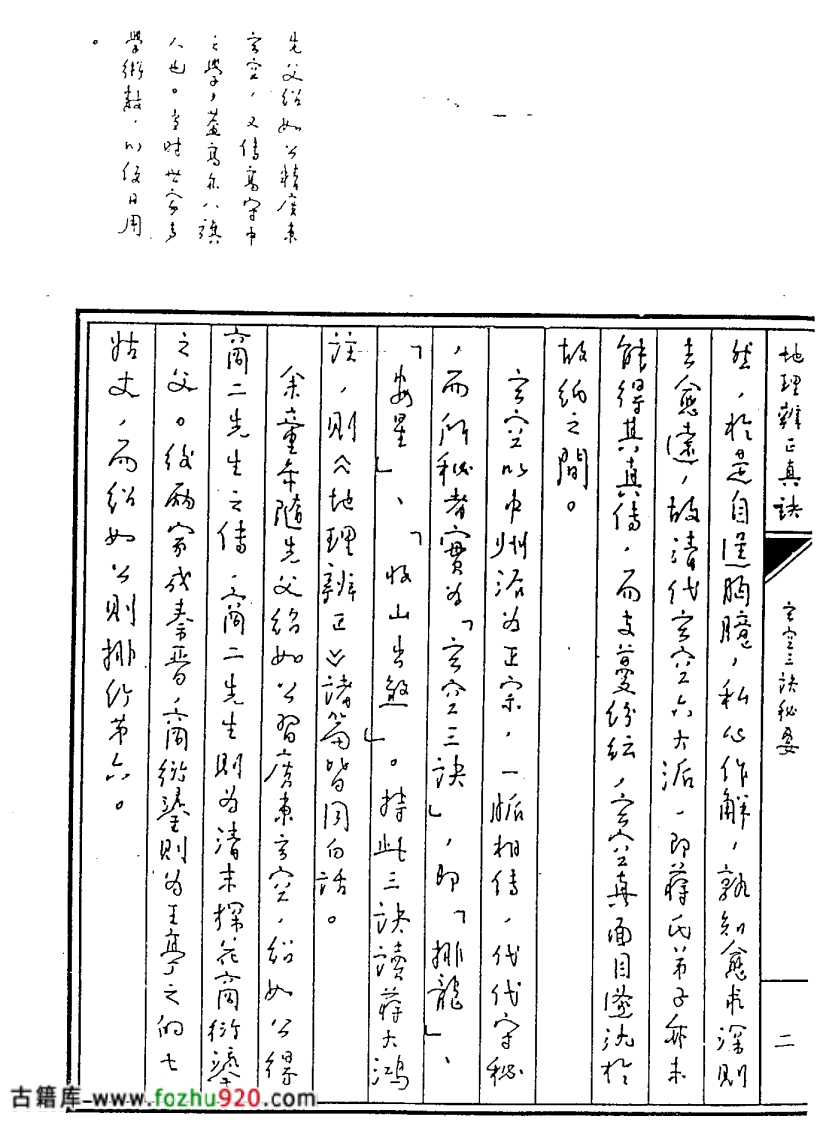 先父紹如公精廣東
玄空，又傳寓安中
之學，蓋寓亦八旗
人也。當時世家多
學術數，以後日用
。
地理辨正真訣
玄空三訣秘要
二
然，於是自逞胸臆，私心作解，孰知愈求深則
去愈遠，故清代玄空六大派，即蔣氏弟子亦未
能得其真傳，而支蔓紛紜，玄空真面目遂沈於
故紙之間。
玄空以中州派為正宗，一脈相傳，代代守秘
，而所秘者實為「玄空三訣」，即「排龍」、
「安星」、「收山出煞」。持此三訣讀蔣大鴻
註，則《地理辨正》諸篇皆同白話。
余童年隨先父紹如公習廣東玄空，紹如公得
商二先生之傳，商二先生則為清末探花商衍鎏
之父。後兩家成秦晉，商衍鎏則為王亭之的七
姑丈，而紹如公則排行第六。
古籍库-www.fozhu920.com